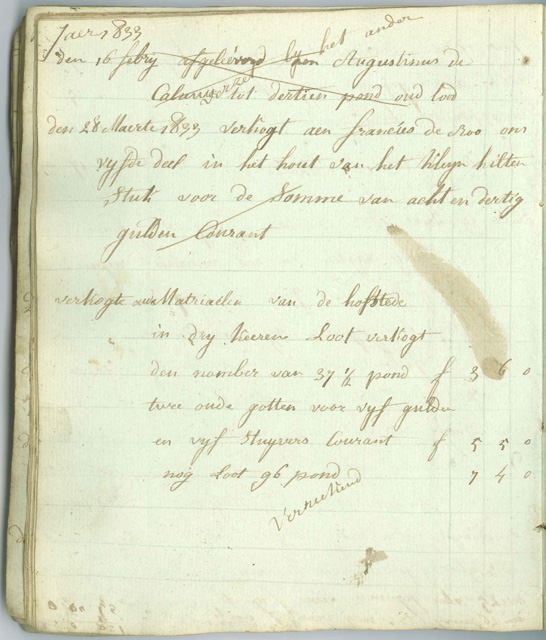 Jaer 1833
by het ander
den 16 febrij afgeliéverd Augustinus de
tot dertien pond oud lood
den 28 Maerte 1833 verkogt aen francies de vroo ons
vyfde deel in het hout van het kleyn kilten
Stuk voor de Somme van acht en dertig
gulden Courant
verkogte oude Matriaelen van de hofstede
in dry keeren Loot verkogt
den nomber van 37 1/2 pond f 3 6 0
twee oude gotten voor vyf gulden
en vyf Stuyvers Courant f 5 5 0
nog Loot 96 pond 7 4 0